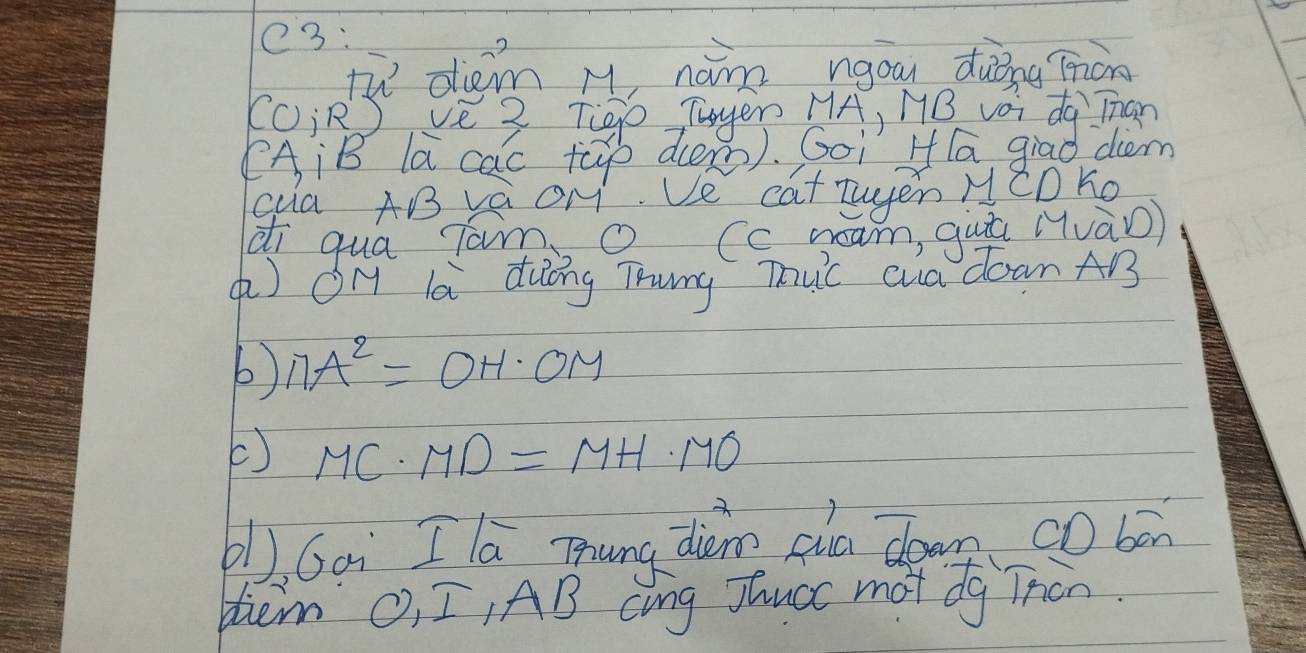 C3:
Từ điểm M, nằm ngoài đường Tròn
(O;R) vẽ 2 Tiếp Tuyến MA, MB với đg Tròn
(A;B là các tiếp điểm). Gọi H là giao điểm
của AB và OM. Vẽ cát tuyến MCD ko
đi qua Tâm O (C nằm, giữa M và D)
a) OM là đường Trung Trực của đoạn AB
b) MA² = OH.OM
c) MC.MD = MH.MO
d) Gọi I là Trung điểm của đoạn CD bốn
điểm O, I, AB cùng Thuộc một đg Tròn.